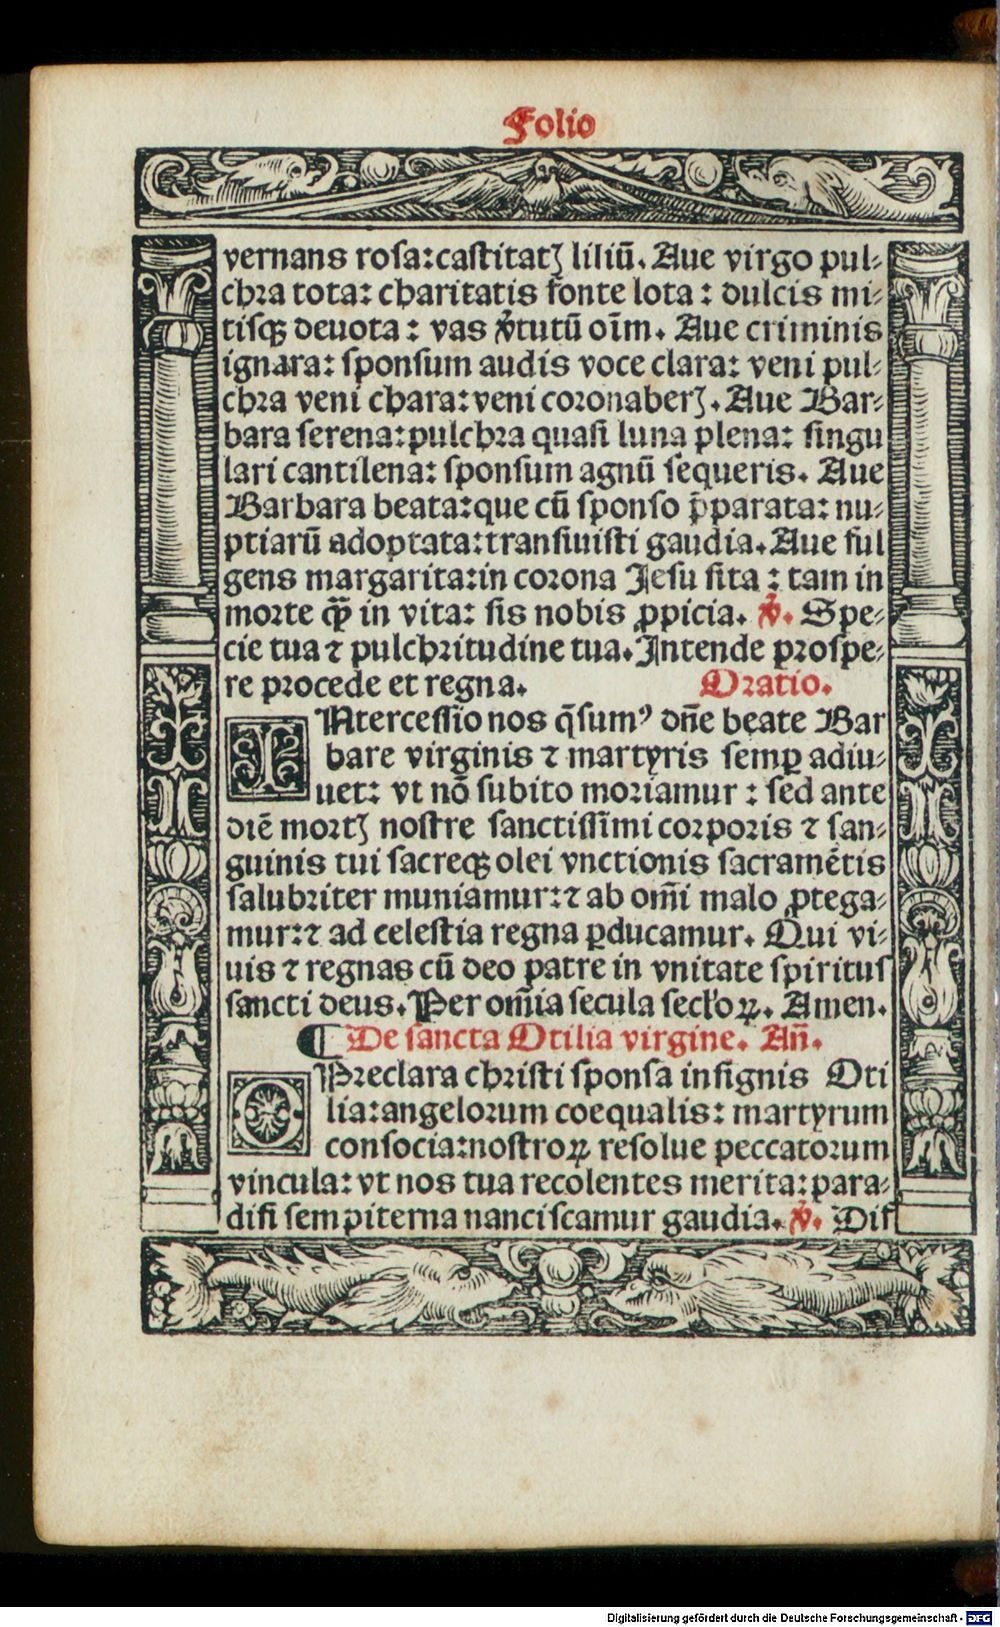 Folio
vernans rosa: castitatꝭ liliū. Aue virgo pul⸗
chra tota: charitatis fonte lota: dulcis mi⸗
tisqꝫ deuota: vas v̓tutū oīm. Aue criminis
ignara: sponsum audis voce clara: veni pul⸗
chra veni chara: veni coronaberꝭ. Aue Bar⸗
bara serena: pulchra quasi luna plena: singu
lari cantilena: sponsum agnū sequeris. Aue
Barbara beata: que cū sponso p̄parata: nu⸗
ptiarū adoptata: transiuisti gaudia. Aue ful
gens margarita: in corona Jesu sita: tam in
morte qꝫ̄ in vita: sis nobis ꝓpicia. ℣. Spe⸗
cie tua ⁊ pulchritudine tua. Intende prospe⸗
re procede et regna. Oratio.
INtercessio nos q̄sumꝰ dn̄e beate Bar
bare virginis ⁊ martyris semꝑ adiu⸗
uet: vt nō subito moriamur: sed ante
diē mortꝭ nostre sanctissimi corporis ⁊ san⸗
guinis tui sacreqꝫ olei vnctionis sacramētis
salubriter muniamur: ⁊ ab om̄i malo ꝓtega⸗
mur: ⁊ ad celestia regna ꝑducamur. Qui vi⸗
uis ⁊ regnas cū deo patre in vnitate spiritus
sancti deus. Per om̄ia secula secl'oꝝ. Amen.
¶ De sancta Otilia virgine. An̄.
OPreclara christi sponsa insignis Oti
lia: angelorum coequalis: martyrum
consocia: nostroꝝ resolue peccatorum
vincula: vt nos tua recolentes merita: para⸗
disi sempiterna nanciscamur gaudia. ℣. Dif
Digitalisierung gefördert durch die Deutsche Forschungsgemeinschaft - DFG